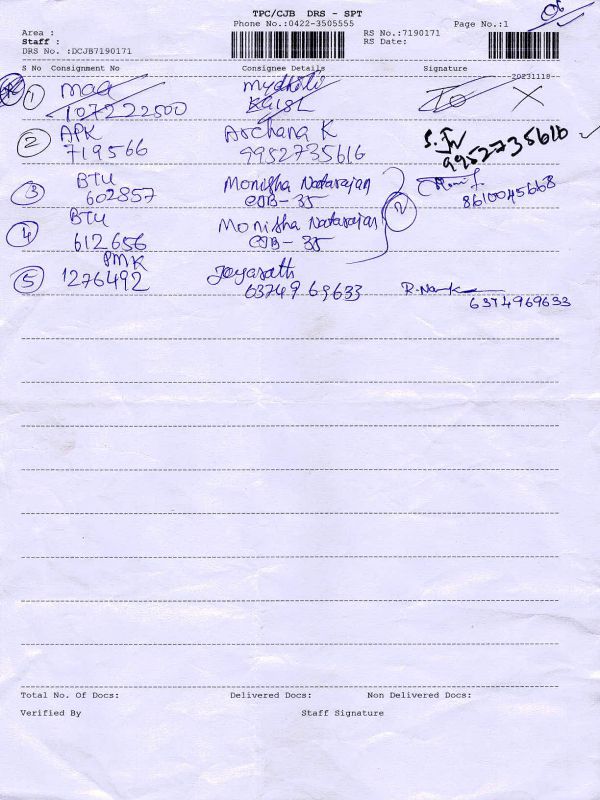 TPC/CJB DRS - SPT
Phone No.:0422-3505555 Page No.:1
Area :
Staff :
RS No.:7190171
RS Date:
DRS No. :DCJB7190171
S No Consignment No Consignee Details Signature
20231118--
1 maa
107222500
2 APK Archana K
719566 9952735616 9952735616
3 BTU Monisha Natarajan
602857 CJB-35 8610045668
4 BTU Monisha Natarajan
612656 CJB-35
5 PMK
1276492 Jayasath
63749 69633 R.Nank
6374969633
Total No. Of Docs: Delivered Docs: Non Delivered Docs:
Verified By Staff Signature